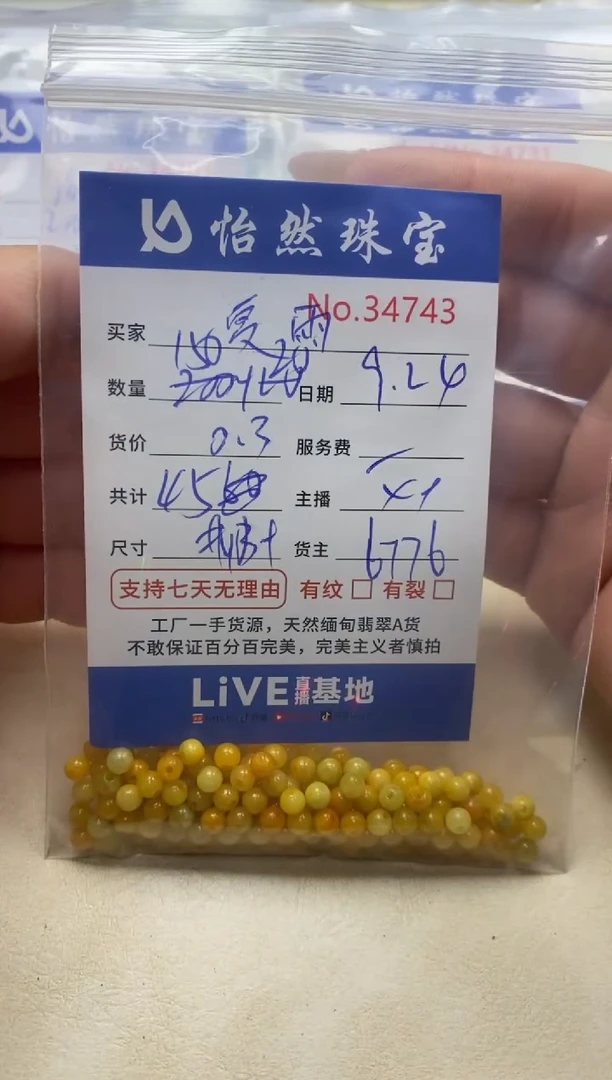 怡然珠宝
No.34743
买家 夏雨
数量 日期 9.24
货价 0.3 服务费
共计 45 主播
尺寸 货主 6776
支持七天无理由 有纹 □ 有裂 □
工厂一手货源，天然缅甸翡翠A货
不敢保证百分百完美，完美主义者慎拍
LiVE直播基地